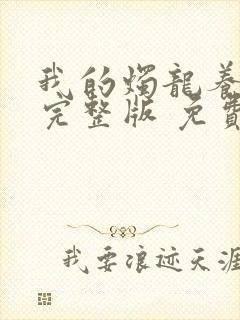 我的燭龍養
完整版 免費
我要浪迹天涯